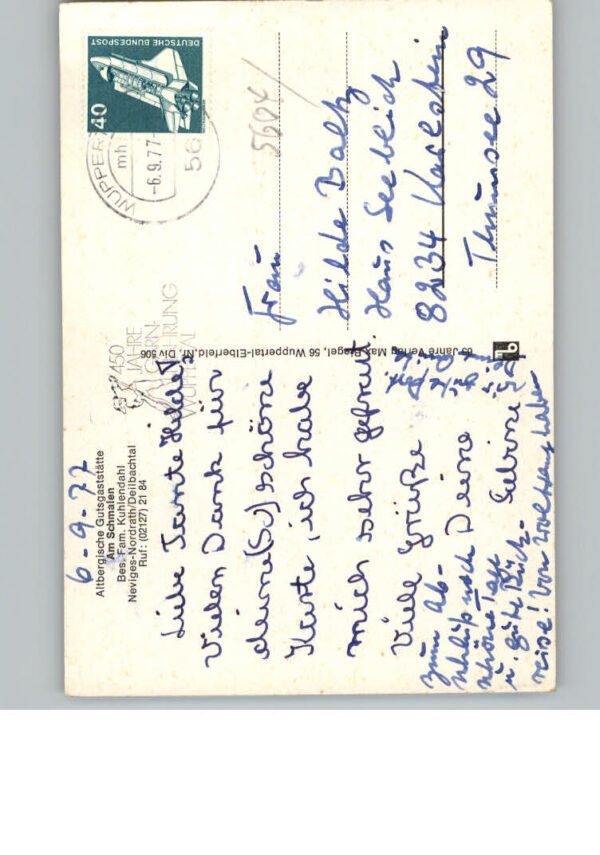 6-9-77
Altbergische Gutsgaststätte
Am Schmalen
Bes. Fam. Kuhlendahl
Neviges-Nordrath/Deilbachtal
Ruf: (02127) 21 84
Liebe Tante Hilde
Vielen Dank für
deine (Sv) schöne
Karte, ich habe
mich sehr gefreut.
Viele Grüße
Deine
Sabine
zum Ab-
schluß noch
schöne Tage
u. gute Rück-
reise! Von
63 Jahre Verlag Max Biegel, 56 Wuppertal-Elberfeld, Nr. Div 506
450
JAHRE
GARN-
NAHRUNG
WUPPERTAL
WUPPER
mh
-6.9.77-
56
DEUTSCHE BUNDESPOST
40
5604/
Frau
Hilde Baltz
Haus Seebleich
8234 Karlstein
Thumsee 29